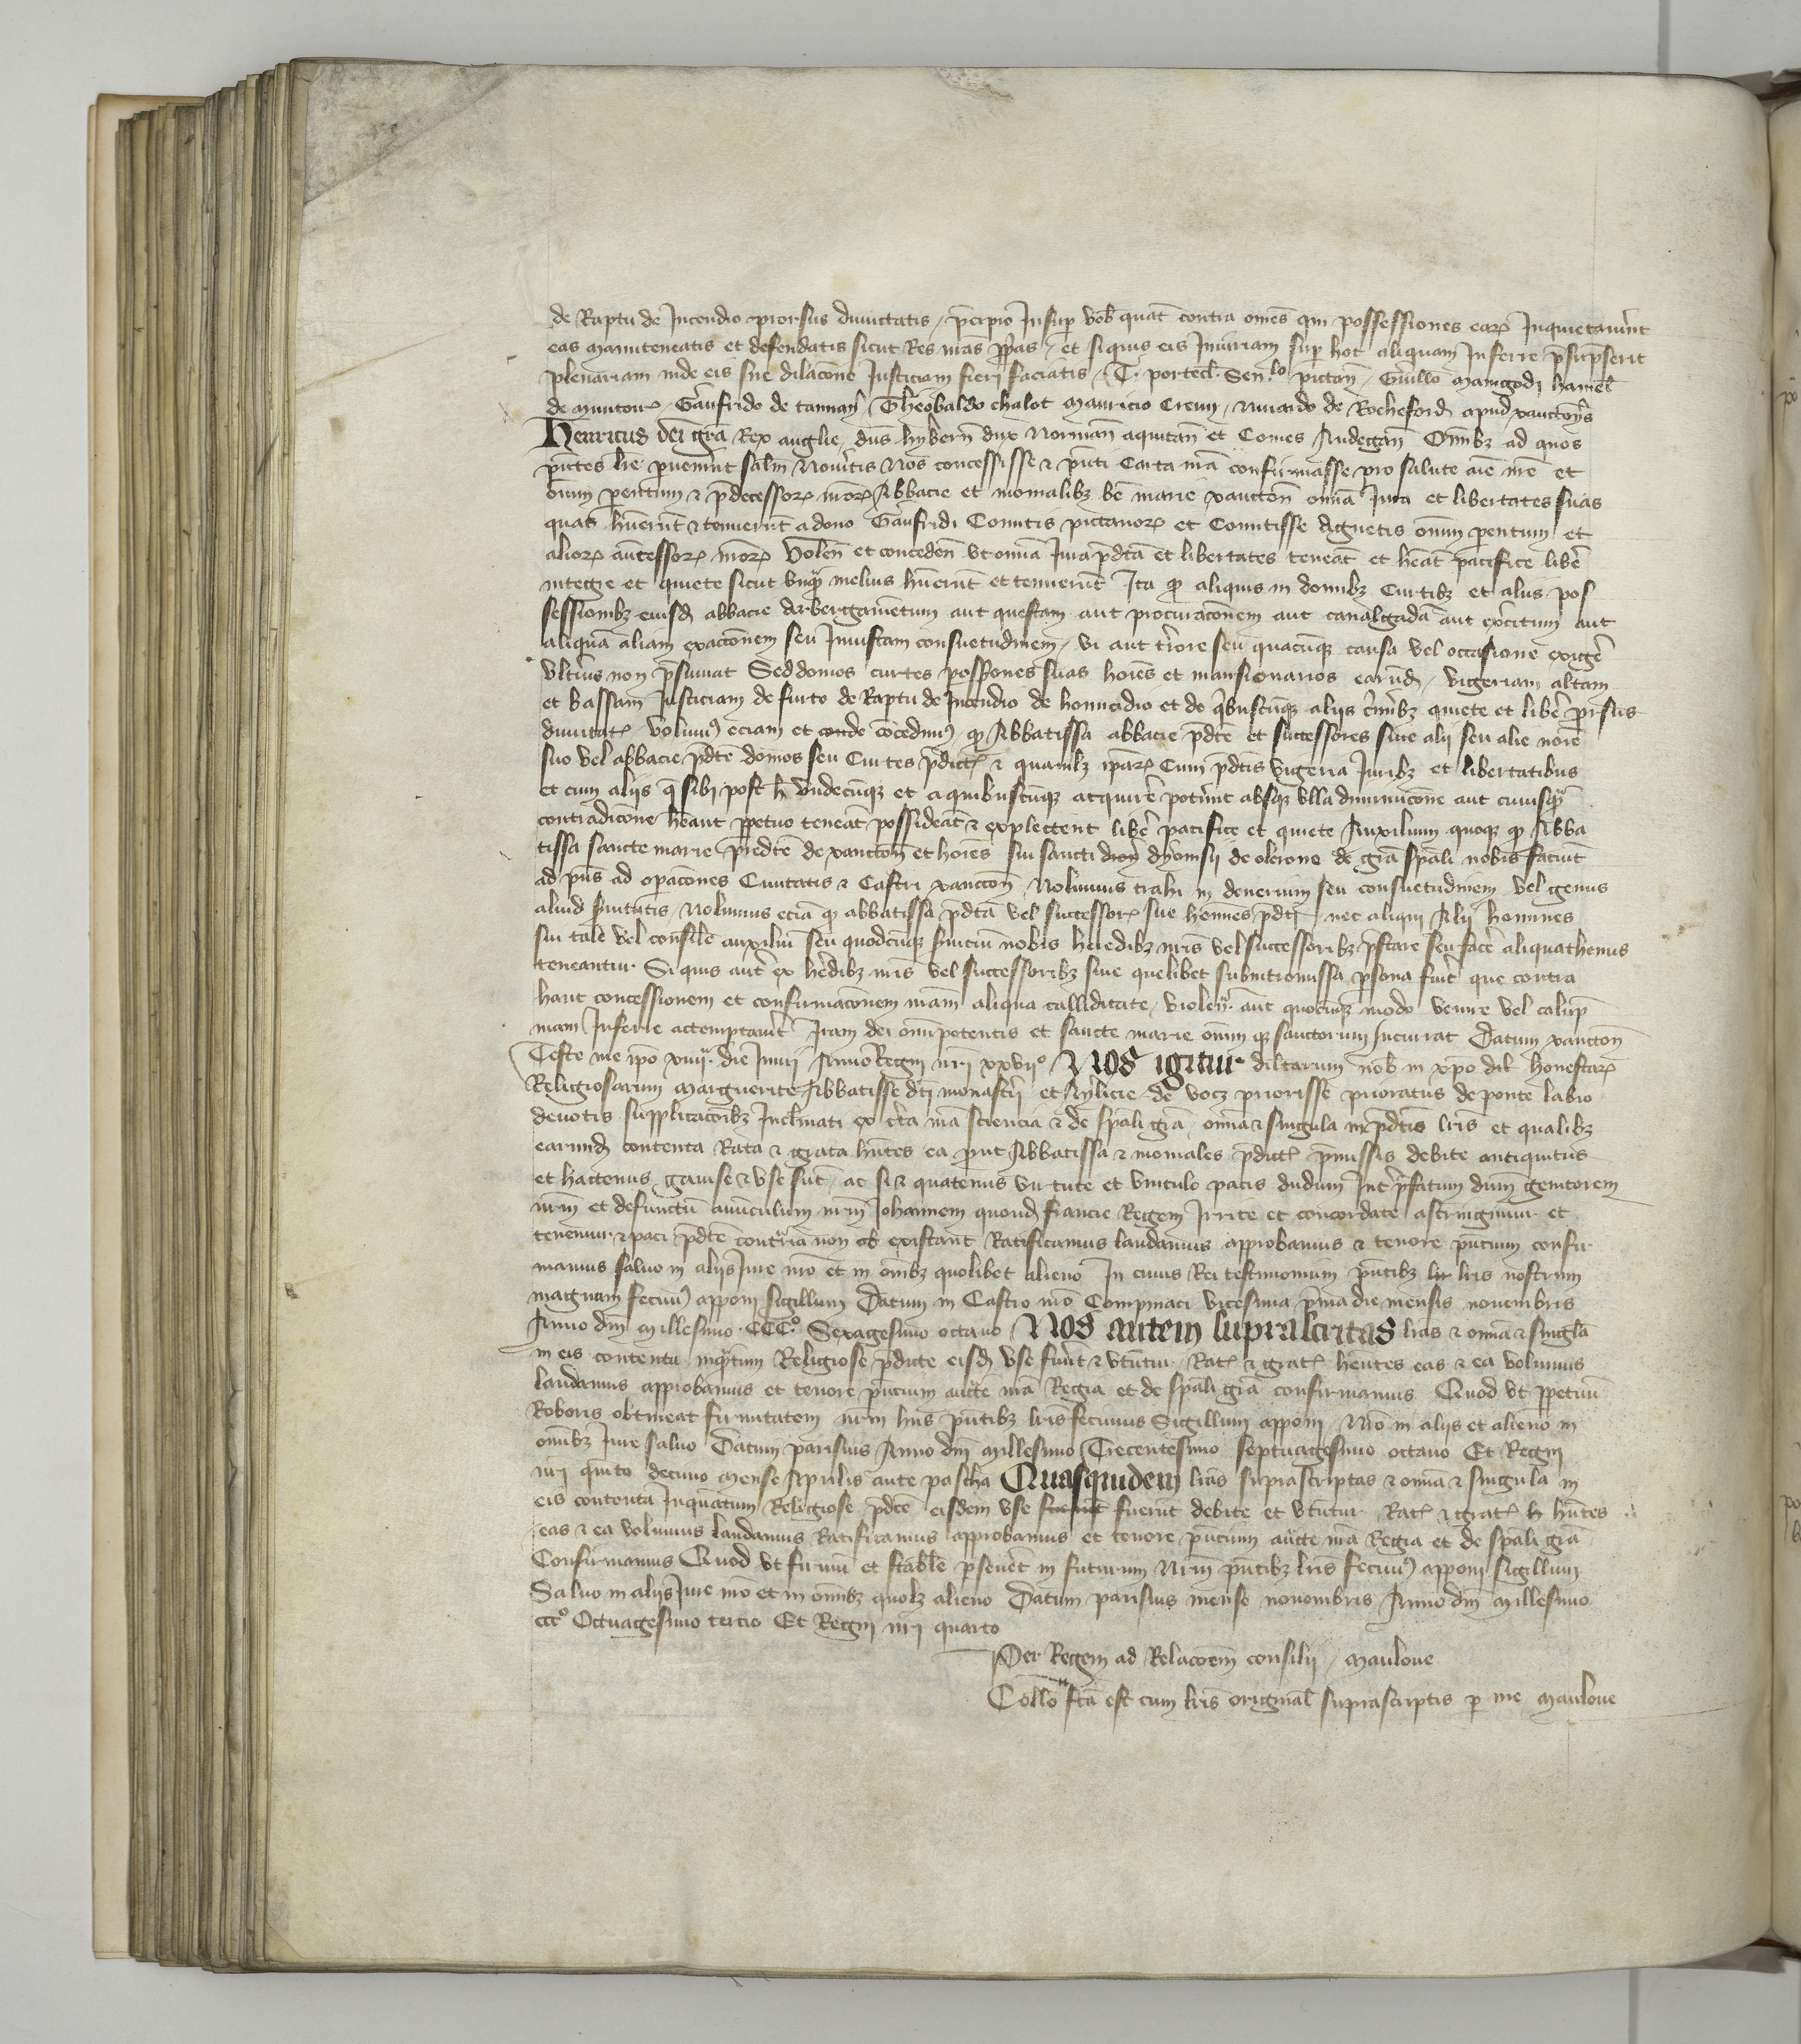 de Raptu de Incendio prorsus dimittatis, p̄cipio Insup̄ vob̄ quat̄ contra om̄es qui possessiones eaꝝ Inquietaūnt
eas manuteneatis et defendatis sicut Res meas pp̄as, et siquis eis Iniuriam sup̄ hoc aliquam Inferre p̄supserit
plenariam inde eis sine dilac̄one Iusticiam fieri faciatis, T. portecl̄. Sen.lo pictan̄, Guill̄o maingodi
de muntour, Gaufrido de tannay, Theobaldo chalot mauricio Creun, de Rocheford apud xanctonas
Henricus dei gr̄a Rex anglie, dn̄s hyberñ dux Normañ aquitañ et Comes Andegañ Om̄ibꝫ ad quos
p̄ntes lr̄e puenīnt salt̄m Nou̾itis nos concessisse ⁊ p̄nti Carta nr̄a confirmasse pro salute aīe nr̄e et
om̄um parentum ⁊ p̄decessoꝝ nr̄oꝝ Abbacie et monialibꝫ be marie xanctoñ om̄ia Iura et libertates suas
quas hu̾erūt ⁊ tenuerūt a dono Gaufridi Comitis pictauoꝝ et Comitisse Agnetis om̄um parentum et
alioꝝ an̄cessoꝝ nr̄oꝝ Voleñ et concedeñ vt om̄ia Iura p̄dt̄a et libertates teneāt et hēāt pacifice libe̾
integre et quiete sicut vnq̄ melius hu̾erūt et tenuerūt Ita qꝫ aliquis in domibꝫ Curtibꝫ et aliis pos
sessionibꝫ eiusd̄ abbacie arbergamentum aut questam aut procurac̄onem aut caualgadā aut exe̾citum aut
aliquā aliam exacc̄onem seu Iniustam consuetudinem, vi aut tīore seu quacūqꝫ causa vel occasione exige̾
vlt̾ius non p̄sumat Sed domos curtes poss̄iones suas hoīes et mansionarios earūd̄, vigeriam altam
et bassam Iusticiam de furto de Raptu de Incendio de homicidio et de q̄buscūqꝫ aliis c̾minibꝫ quiete et libe̾ pr̄sus
dimitatꝭ Volumꝰ eciam et conde cōcedimꝰ qꝫ Abbatissa abbacie p̄dt̄e et successores siue alij seu alie noīe
suo vel abbacie p̄dt̄e domos seu Curtes p̄dictꝭ ⁊ quamlꝫ ip̄aꝝ Cum p̄dt̄is vigeria Iuribꝫ et libertatibus
et cum aliis q̄ sibi post h̄ vndecūqꝫ et a quibuscūqꝫ acquire̾ pote̾int absqꝫ vlla diminuc̄one aut cuiusq̄
contradic̄one hēant ppetuo teneāt possideāt ⁊ explectent libe̾ pacifice et quiete Auxilium quoqꝫ qꝫ Abba
tissa sancte marie p̄edt̄e de xanctoñ et hoīes sui sancti dyonisij de olerone de gr̄a sp̄ali nobis faciūt
ad p̄ns ad opac̄ones Ciuitatis ⁊ Castri xanctoñ Nolumus trahi in deuerium seu consuetudinem vel genus
aliud s̾uitutis, Nolumus eciā qꝫ abbatissa p̄dt̄a vel successoꝝ sue homines p̄dt̄i nec aliqui Alij homines
sui tale vel consile auxiliū seu quodcūqꝫ s̾uiciū nobis heredibꝫ nr̄is vel successoribꝫ p̄stare seu face̾ aliquathenus
teneantur Si quis aut̾ ex he̾dibꝫ nr̄is vel successoribꝫ siue quelibet submitromissa p̄sona fu̾it que contra
hanc concessionem et confirmac̄onem nr̄am aliqua calliditate, violenc̾ aut quocūqꝫ modo venire vel calūp
niam Inferre actemptau̾it Iram dei om̄ipotentis et sancte marie om̄iumqꝫ sanctorum Incurrat Datum xanctoñ
Teste me ip̄o xiiijª. die Iunij Anno Regni nr̄i xxvijº Nos igitur dilectarum nob̄ in xp̄o dil̄ honestaꝝ
Religiosarum marguerite Abbatisse dt̄i monast̾ij et Aylicie de voez priorisse prioratus de ponte labio
deuotis supplicac̄oibꝫ Inclinati ex c̾ta nr̄a sciencia ⁊ de sp̄ali gr̄a, om̄ia ⁊ singula in p̄dt̄is lr̄is et qualibꝫ
earund̄ contenta Rata ⁊ grata hn̄tes ea prout Abbatissa ⁊ moniales p̄dictꝭ p̄missis debite antiquitus
et hactenus gauise ⁊ vse sūt, ac si ⁊ quatenus virtute et vinculo pacis dudum Int̾ p̄fatum dn̄m genitorem
nr̄m et defunctū auūculum nr̄m Iohannem quond̄ francie Regem Inite et concordate astringimur et
tenemur ⁊ paci p̄dt̄e contraria non ob existant Ratificamus laudamus approbamus ⁊ tenore p̄ncium confir
mamus saluo in aliis Iure nr̄o et in om̄ibꝫ quolibet alieno In cuius Rei testimonium p̄ntibꝫ lr̄ lr̄is nostrum
magnum fecimꝰ apponi sigillum Datum in Castro nr̄o Compniaci vicesima p̄ma die mensis nouembris
Anno dn̄i millesimo .CCCº. Sexagesimo octauo Nos autem suprascriptas lr̄as ⁊ om̄ia ⁊ singl̄a
in eis contenta inq̄ntum Religiose p̄dicte eisd̄ vse fu̾int ⁊ vtūtur Ratꝭ ⁊ gratꝭ hēntes eas ⁊ ea volumus
laudamus approbamus et tenore p̄ncium auct̄e nr̄a Regia et de sp̄ali gr̄a confirmamus Quod vt ppetuū
Roboris obtineat firmitatem nr̄m hiis p̄ntibꝫ lr̄is fecimus Sigillum apponi Nr̄o in aliis et alieno in
om̄ibꝫ Iure saluo Datum parisius Anno dn̄i millesimo Trecentesimo septuagesimo octauo Et Regni
nr̄i quinto decimo mense Aprilis ante pascha Quasquidem lr̄as suprascriptas ⁊ om̄ia ⁊ singula in
eis contenta Inquantum Religiose p̄dt̄e eisdem vse fuerūt fuerūt debite et vtūtur Ratꝭ ⁊ gratꝭ h hn̄tes
eas ⁊ ea volumus laudamus Ratificamus approbamus et tenore p̄ncium auct̄e nr̄a Regia et de sp̄ali gr̄a
Confirmamus Quod vt firmū et stabile p̄seue̾t in futurum Nr̄m p̄ntibꝫ lr̄is fecimꝰ apponi sigillum
Saluo in aliis Iure nr̄o et in om̄ibꝫ quolꝫ alieno Datum parisius mense nouembris Anno dn̄i millesimo
cccº Octuagesimo tercio Et Regni nr̄i quarto
Per Regem ad Relac̄oem consilij, Mauloue
Coll̄o fc̄a est cum lr̄is original̄ suprascriptis p me Mauloue